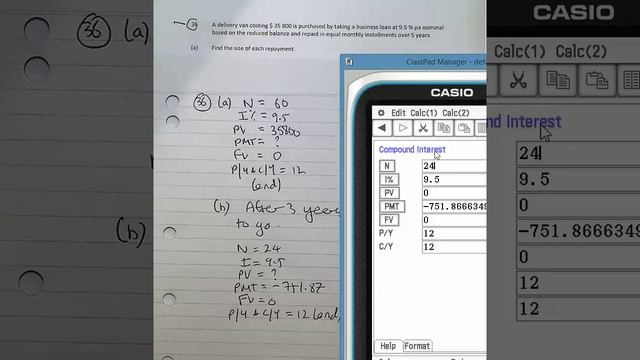 36 A delivery van costing $ 35 800 is purchased by taking a business loan at 9.5 % pa nominal
based on the reduced balance and repaid in equal monthly installments over 5 years.
(a) Find the size of each repayment.
36 (a) N = 60
I% = 9.5
PV = 35800
PMT = ?
FV = 0
P/Y & C/Y = 12
(end)
(b) After 3 years
to go.
N = 24
I = 9.5
PV = ?
PMT = -751.87
FV = 0
P/Y & C/Y = 12 (end)
ClassPad Manager - def
CASIO
Edit Calc(1) Calc(2)
Compound Interest
N 24
I% 9.5
PV 0
PMT -751.8666349
FV 0
P/Y 12
C/Y 12
Help Format
36 (a)
(b)
CASIO
Calc(1) Calc(2)
und Interest
24
9.5
0
-751.8666349
0
12
12